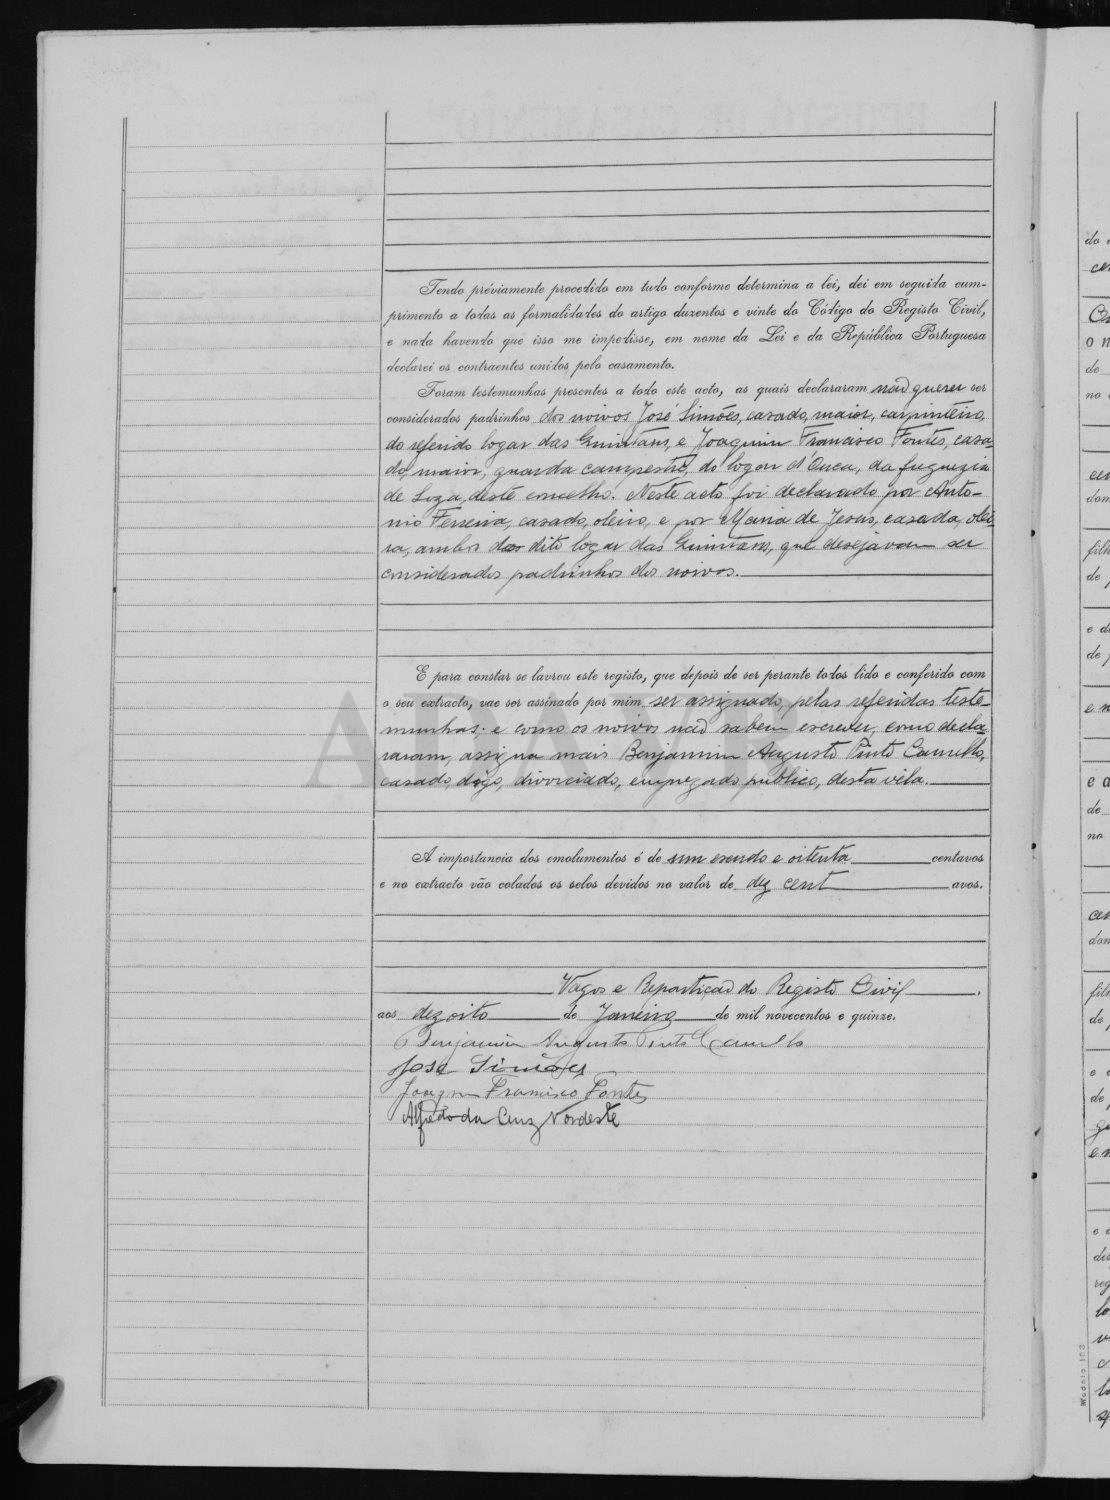 Tendo préviamente procedido em tudo conforme determina a lei, dei em seguida cum-
primento a todas as formalidades do artigo duzentos e vinte do Código do Registo Civil,
e nada havendo que isso me impedisse, em nome da Lei e da República Portuguesa
declarei os contraentes unidos pelo casamento.
Foram testemunhas presentes a todo este acto, as quais declararam não querer ser
considerados padrinhos dos noivos José Simões, casado, maior, carpinteiro,
do referido logar das Quintans, e Joaquim Francisco Fontes, casa-
do, maior, guarda campestre, do logar d'Ouca, da freguezia
de Soza, deste concelho. Neste acto foi declarado por Anto-
nio Ferreira, casado, oleiro, e por Maria de Jesus, casada, olei-
ra, ambos do dito logar das Quintans, que desejavam ser
considerados padrinhos dos noivos.
E para constar se lavrou este registo, que depois de ser perante todos lido e conferido com
o seu extracto, vae ser assinado por mim, ser assignado, pelas referidas teste-
munhas; e como os noivos não sabem escrever, como decla-
raram, assigna mais Benjamim Augusto Pinto Camello,
casado, digo, divorciado, empregado publico, desta vila.
A importancia dos emolumentos é de um escudo e oitenta centavos
e no extracto vão colados os selos devidos no valor de dez cent avos.
Vagos e Repartição do Registo Civil
aos dezoito de Janeiro de mil novecentos e quinze.
Benjamim Augusto Pinto Camello
José Simões
Joaqm Francisco Fontes
Alfredo da Cruz Nordeste
Modelo 103